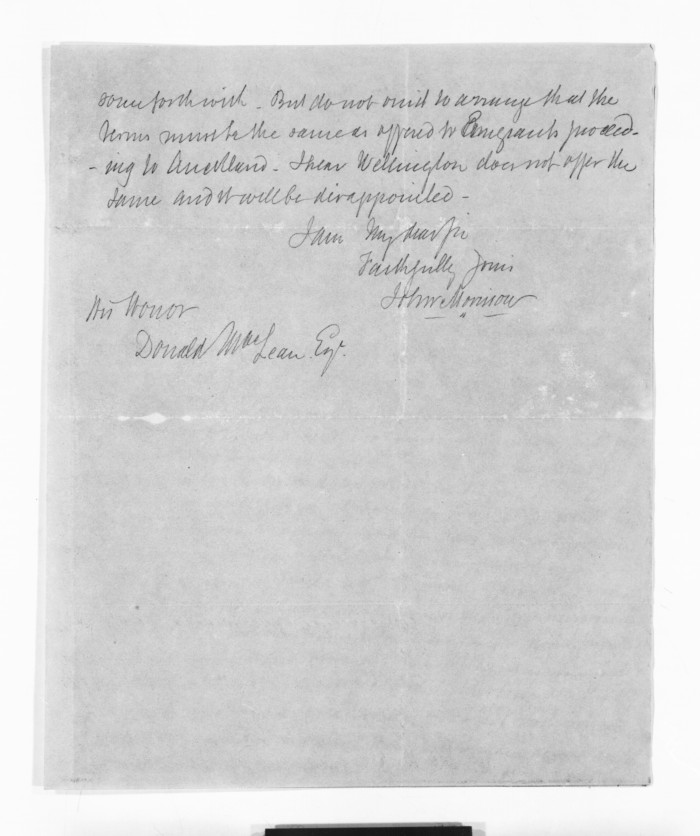 some forthwith - But do not omit to arrange that the
terms must be the same as offered to Emigrants proceed-
- ing to Auckland - I hear Wellington does not offer the
same and it will be disappointed -
I am My dear Sir
Faithfully Yours
John Morrison
His Honor
Donald MacLean Esqr.